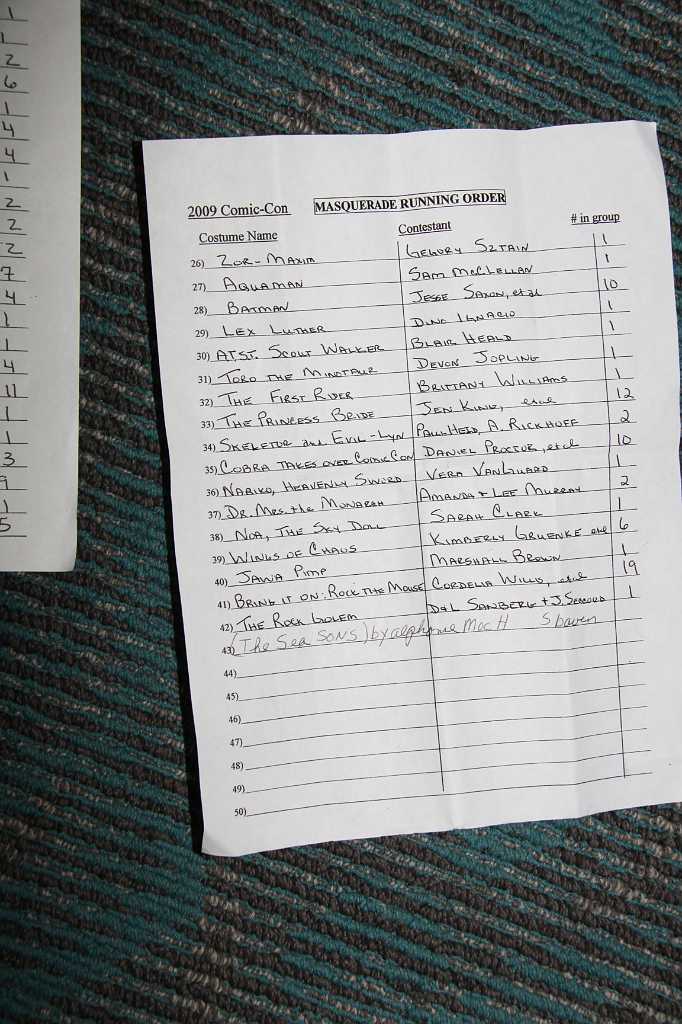 1
1
2
6
1
4
4
1
2
2
2
7
4
1
1
4
11
1
1
3
9
1
5
2009 Comic-Con MASQUERADE RUNNING ORDER
Costume Name Contestant # in group
26) Zor-Maxim Gegory Sztain 1
27) Aquaman Sam McClellan 1
28) Batman Jesse Saxon, et al 10
29) Lex Luther Dino Ignacio 1
30) AT.ST. Scout Walker Blair Heald 1
31) Toro the Minotaur Devon Jopling 1
32) The First Rider Brittany Williams 1
33) The Princess Bride Jen King, et al 12
34) Skeletor and Evil-Lyn Paul Held, A. Rickhoff 2
35) Cobra Takes over Comic Con Daniel Proctor, et al 10
36) Nariko, Heavenly Sword Vera Vanguard 1
37) Dr. Mrs. the Monarch Amanda + Lee Murray 2
38) Noa, The Sky Doll Sarah Clark 1
39) Wings of Chaos Kimberly Gruenke et al 6
40) Jawa Pimp Marshall Brown 1
41) Bring it on: Rock the Mouse Cordelia Willis, et al 19
42) The Rock Golem D+L Sanberg + J. Seacord 1
43) (The Sea sons) by alphonse Moc H
44)
45)
46)
47)
48)
49)
50)